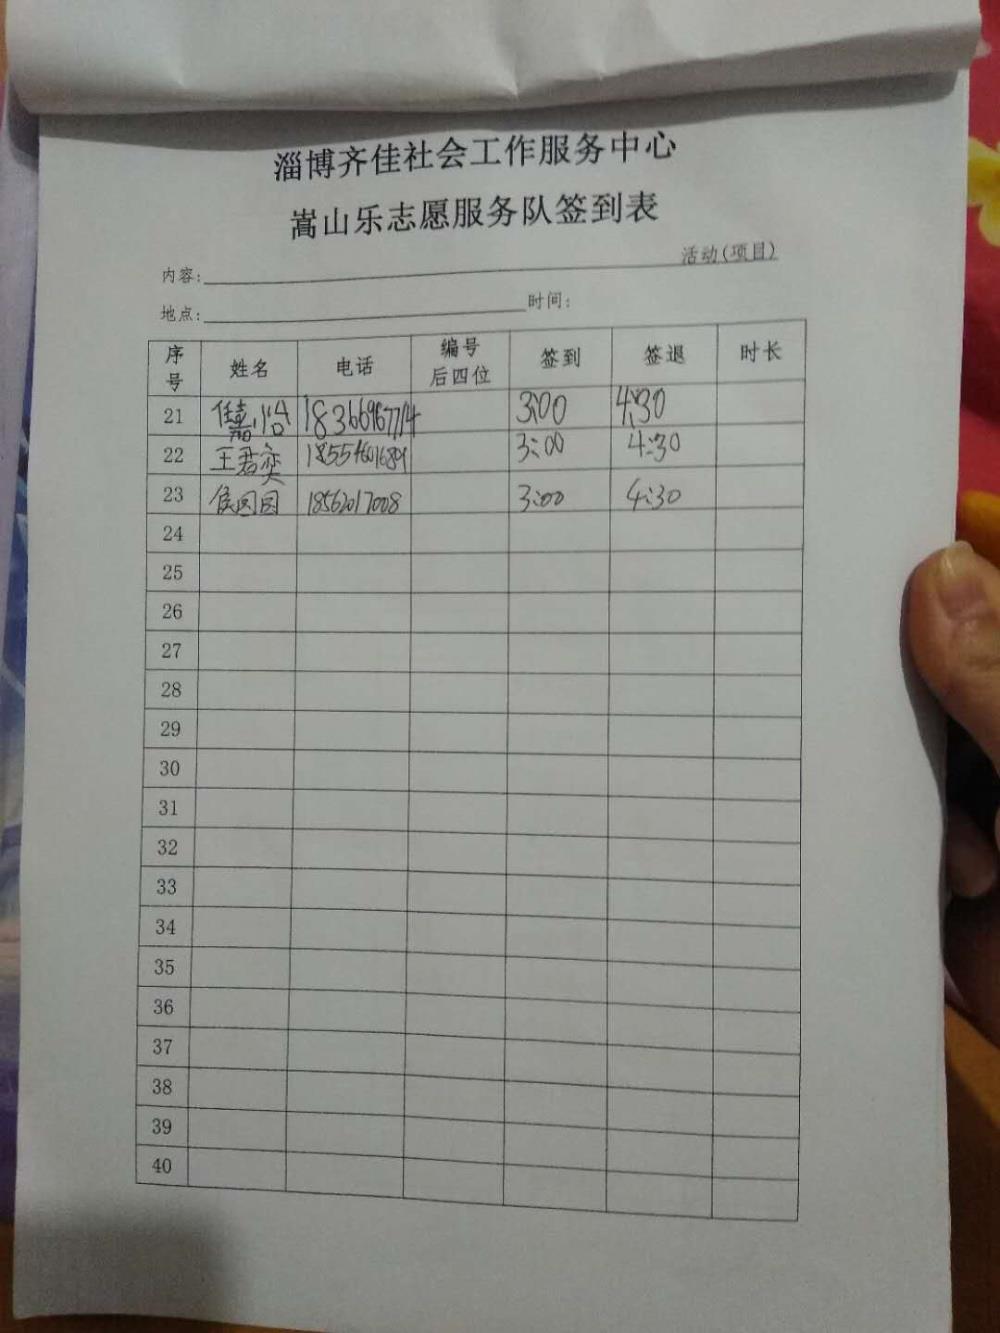 淄博齐佳社会工作服务中心
嵩山乐志愿服务队签到表
内容: 活动(项目)
地点: 时间:
序号 姓名 电话 编号后四位 签到 签退 时长
21 任嘉怡 18366967714 3:00 4:30
22 王君奕 18554601689 3:00 4:30
23 侯圆圆 18562017008 3:00 4:30
24
25
26
27
28
29
30
31
32
33
34
35
36
37
38
39
40